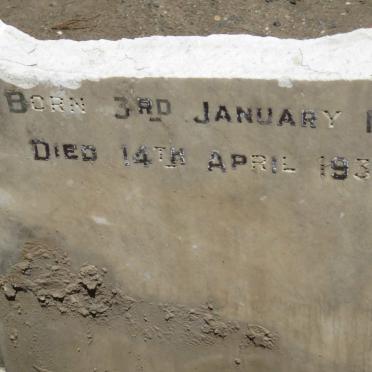 BORN 3RD JANUARY
DIED 14TH APRIL 193